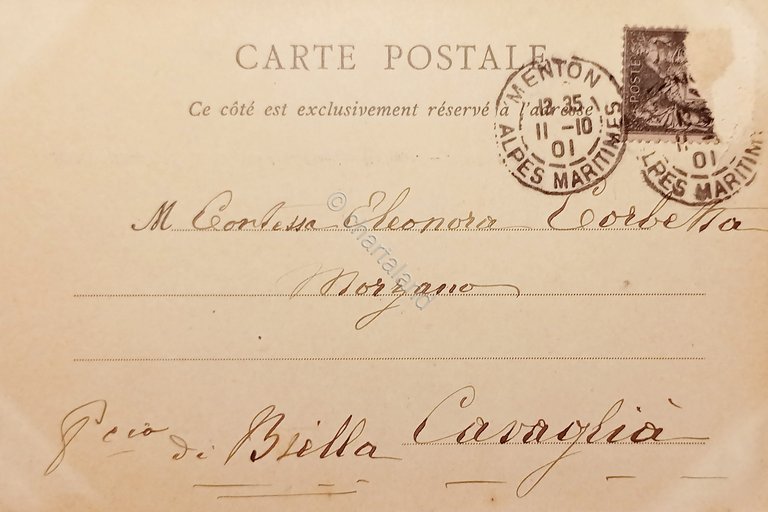 CARTE POSTALE
Ce côté est exclusivement réservé à l'adresse
MENTON
12 35
11 -10
01
ALPES MARITIMES
POSTES
01
LPES MARITIM
M Contessa Eleonora Corbetta
Morzano
Cavaglià
Pcia di Biella
© Chartaland